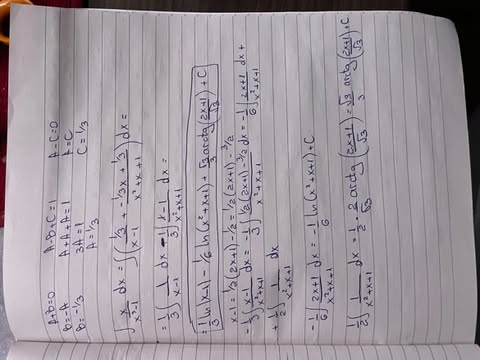 A+B=0 A-B+C=1 A-C=0
B=-A A+A+A=1 A=C
B=-1/3 3A=1 C=1/3
A=1/3
∫ x/(x³-1) dx = ∫( (1/3)/(x-1) + (-1/3x+1/3)/(x²+x+1) ) dx =
= 1/3 ∫ 1/(x-1) dx - 1/3 ∫ (x-1)/(x²+x+1) dx =
= 1/3 ln|x-1| - 1/6 ln(x²+x+1) + √3/3 arctg((2x+1)/√3) + C
x-1 = 1/2(2x+1) - 1/2 = 1/2(2x+1) - 3/2
-1/3 ∫ (x-1)/(x²+x+1) dx = -1/3 ∫ (1/2(2x+1) - 3/2)/(x²+x+1) dx = -1/6 ∫ (2x+1)/(x²+x+1) dx +
+ 1/2 ∫ 1/(x²+x+1) dx
-1/6 ∫ (2x+1)/(x²+x+1) dx = -1/6 ln(x²+x+1) + C
1/2 ∫ 1/(x²+x+1) dx = 1/2 · 2/√3 arctg((2x+1)/√3) = √3/3 arctg((2x+1)/√3) + C